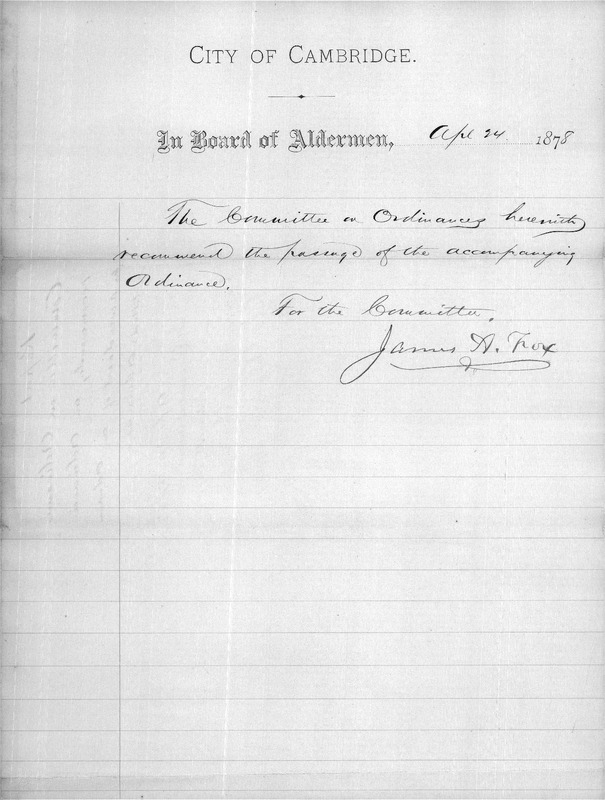 CITY OF CAMBRIDGE.
In Board of Aldermen, Apl 24 1878
The Committee on Ordinances herewith
recommend the passage of the accompanying
Ordinance.
For the Committee.
James A. Fox